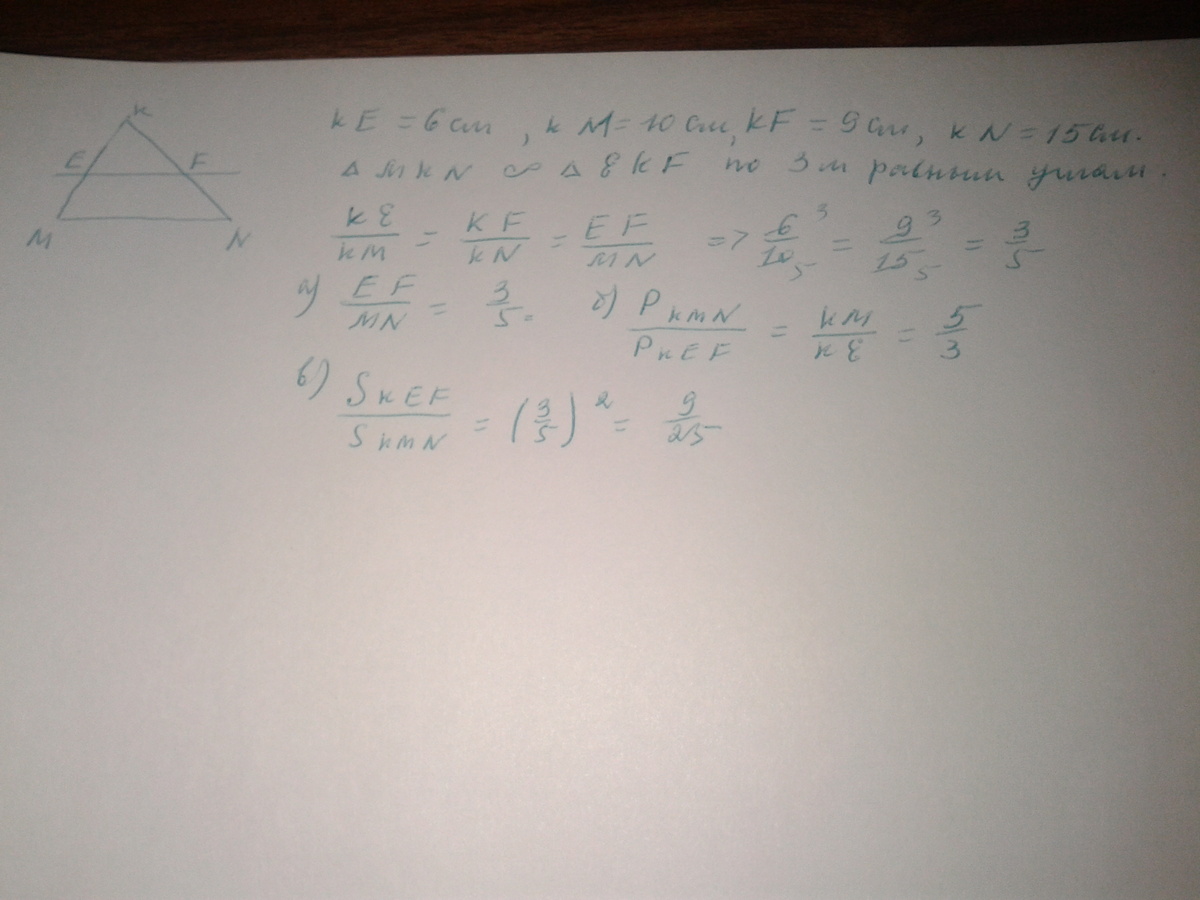 K
E F
M N
KE = 6 см, KM = 10 см, KF = 9 см, KN = 15 см.
△ MKN ∞ △ EKF по 3м равным углам.
KE/KM = KF/KN = EF/MN => 6 3/10 5 = 9 3/15 5 = 3/5
а) EF/MN = 3/5. б) P KMN/P KEF = KM/KE = 5/3
в) S KEF/S KMN = (3/5)² = 9/25